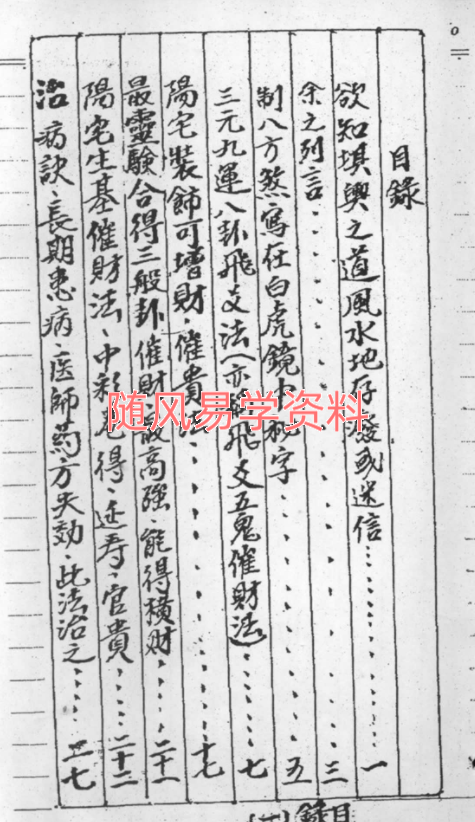 目錄
欲知堪輿之道風水地存發或迷信……一
余之列言……三
制八方煞寫在白虎鏡中秘字……五
三元九運八卦飛爻法(亦飛爻五鬼催財法)……七
陽宅裝飾可增財、催貴法……十七
最靈驗合得三般卦催財最高強、能得橫財……二十一
陽宅生基催財法、中彩危得、延寿、官貴……二十二
治病訣、長期患病、医師药方失効、此法治之……二七
目錄
随风易学资料